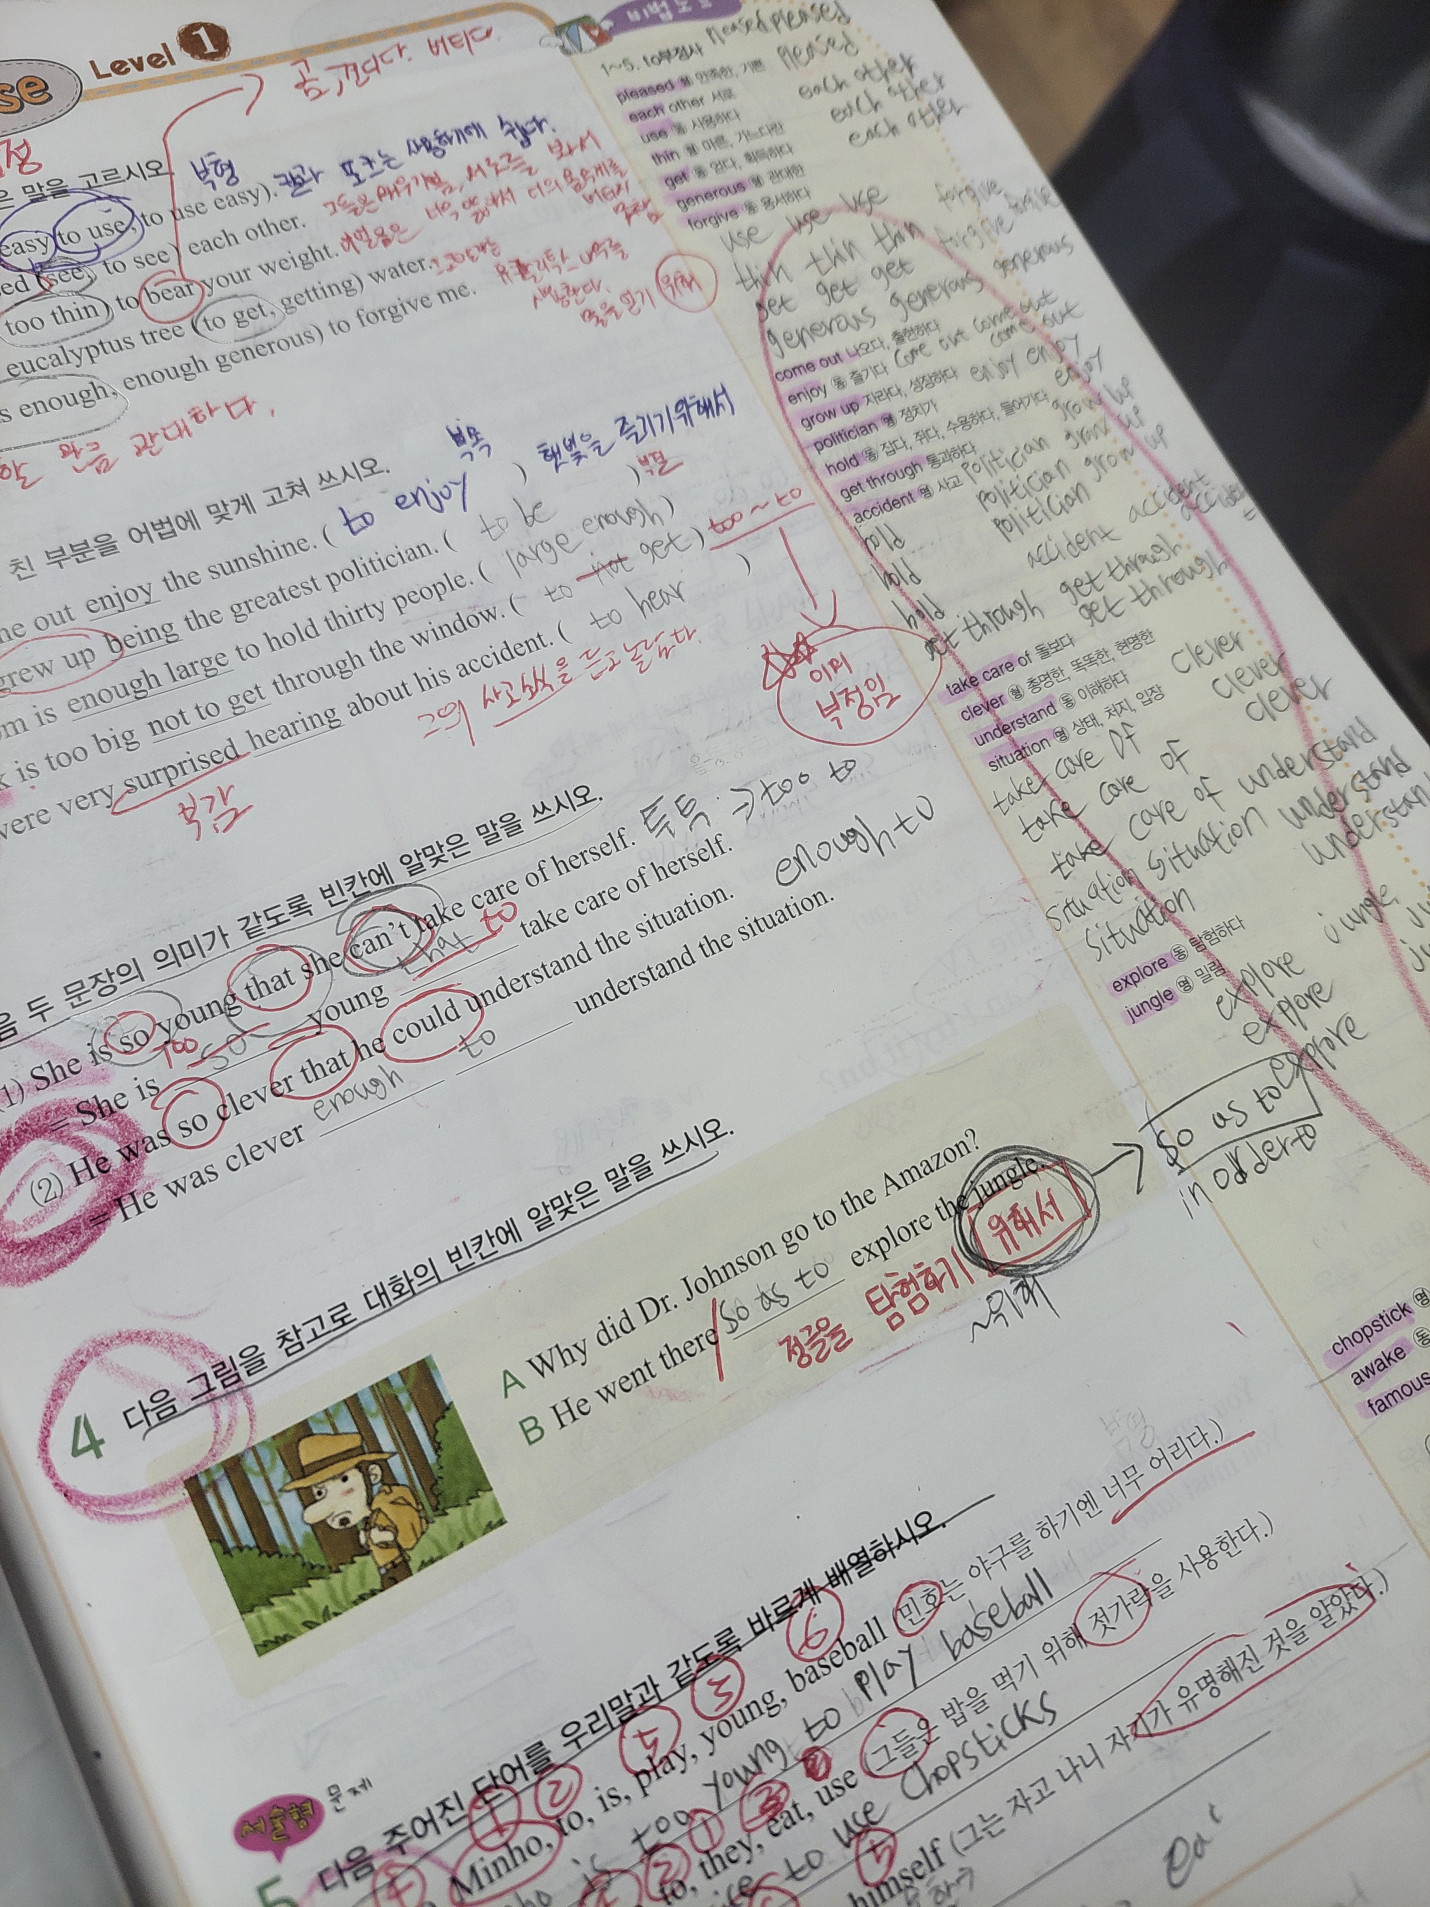 se
Level 1
곰, 견디다. 버티다.
은 말을 고르시오.
부형
칼과 포크는 사용하기에 쉽다.
easy to use, to use easy).
sed (see, to see) each other.
too thin) to bear your weight.
eucalyptus tree (to get, getting) water.
s enough, enough generous) to forgive me.
물을 얻기 위해
할 만큼 관대하다.
친 부분을 어법에 맞게 고쳐 쓰시오.
부목
me out enjoy the sunshine. ( to enjoy ) 햇빛을 즐기기위해서
grew up being the greatest politician. ( to be ) 부결
om is enough large to hold thirty people. ( large enough )
k is too big not to get through the window. ( to not get ) too ~ to
were very surprised hearing about his accident. ( to hear )
그의 사고소식을 듣고 놀랐다.
부감
이미
부정임
음 두 문장의 의미가 같도록 빈칸에 알맞은 말을 쓰시오.
(1) She is so young that she can't take care of herself.
⇒ too to
= She is too so young that to take care of herself.
(2) He was so clever that he could understand the situation.
enough to
= He was clever enough to understand the situation.
4 다음 그림을 참고로 대화의 빈칸에 알맞은 말을 쓰시오.
A Why did Dr. Johnson go to the Amazon?
B He went there so as to explore the jungle.
정글을 탐험하기 위해서
~위해
so as to
in order to
서술형 문제
5 다음 주어진 단어를 우리말과 같도록 바르게 배열하시오.
Minho, to, is, play, young, baseball (민호는 야구를 하기엔 너무 어리다.)
is too young to play baseball
to, they, eat, use (그들은 밥을 먹기 위해 젓가락을 사용한다.)
to use chopsticks
himself (그는 자고 나니 자기가 유명해진 것을 알았다.)
비법노트
1~5. to부정사
pleased pleased
pleased 형 만족한, 기쁜
pleased
each other 서로
each other
use 동 사용하다
each other
thin 형 마른, 가느다란
each other
get 동 얻다, 획득하다
generous 형 관대한
forgive 동 용서하다
use use use
forgive
thin thin thin
forgive forgive
get get get
generous generous generous
come out 나오다, 출현하다
come out come out
come out
enjoy 동 즐기다
enjoy enjoy
enjoy
grow up 자라다, 성장하다
politician 명 정치가
hold 동 잡다, 쥐다, 수용하다, 들어가다
grow up
get through 통과하다
politician grow up
accident 명 사고
politician
politician grow up
hold
accident accident accident
hold
hold
get through get through
get through
take care of 돌보다
clever 형 총명한, 똑똑한, 현명한
understand 동 이해하다
situation 명 상태, 처지, 입장
clever
clever
clever
take care of
take care of
take care of understand
situation situation understand
situation understan
explore 동 탐험하다
jungle 명 밀림
jungle
explore
explore
explore
chopstick 명
awake 동
famous